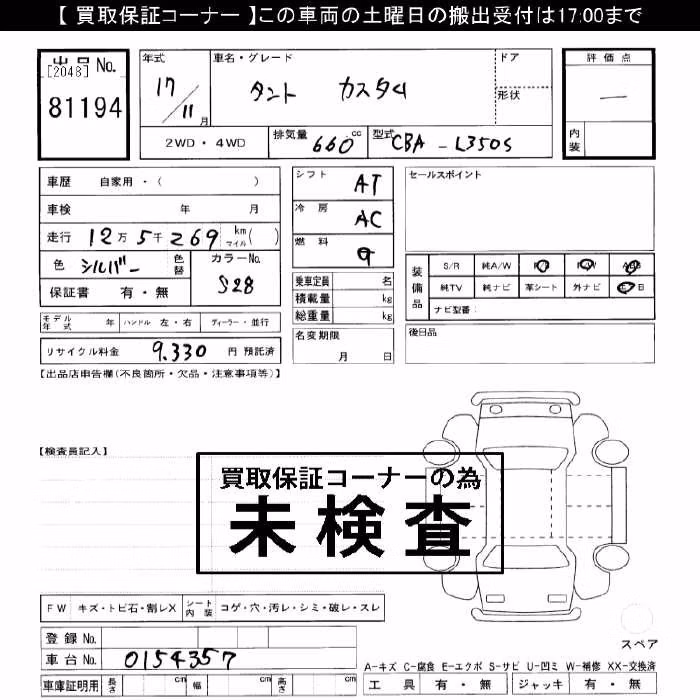 【 買取保証コーナー 】この車両の土曜日の搬出受付は17:00まで
出品 No.
[2048]
81194
年式 17/11月
車名・グレード
タント カスタム
ドア
形状
評価点
—
内装
2WD・4WD
排気量 660 cc
型式 CBA-L350S
車歴 自家用・( )
車検 年 月
走行 12万5千269 km マイル( )
色 シルバー 色替
カラーNo. S28
保証書 有・無
モデル年式 年 ハンドル 左・右 ディーラー・並行
リサイクル料金 9.330 円 預託済
シフト AT
冷房 AC
燃料 G
乗車定員 名
積載量 kg
総重量 kg
名変期限
月 日
セールスポイント
装備品
S/R 純A/W
純TV 純ナビ 革シート 外ナビ
ナビ型番:
後日品
【出品店申告欄(不良箇所・欠品・注意事項等)】
【検査員記入】
買取保証コーナーの為
未検査
FW キズ・トビ石・割レX シート内装 コゲ・穴・汚レ・シミ・破レ・スレ
登録 No.
車台 No. 0154357
車庫証明用 長さ cm 幅 cm 高さ cm
スペア
A-キズ C-腐食 E-エクボ S-サビ U-凹ミ W-補修 XX-交換済
工具 有・無 ジャッキ 有・無